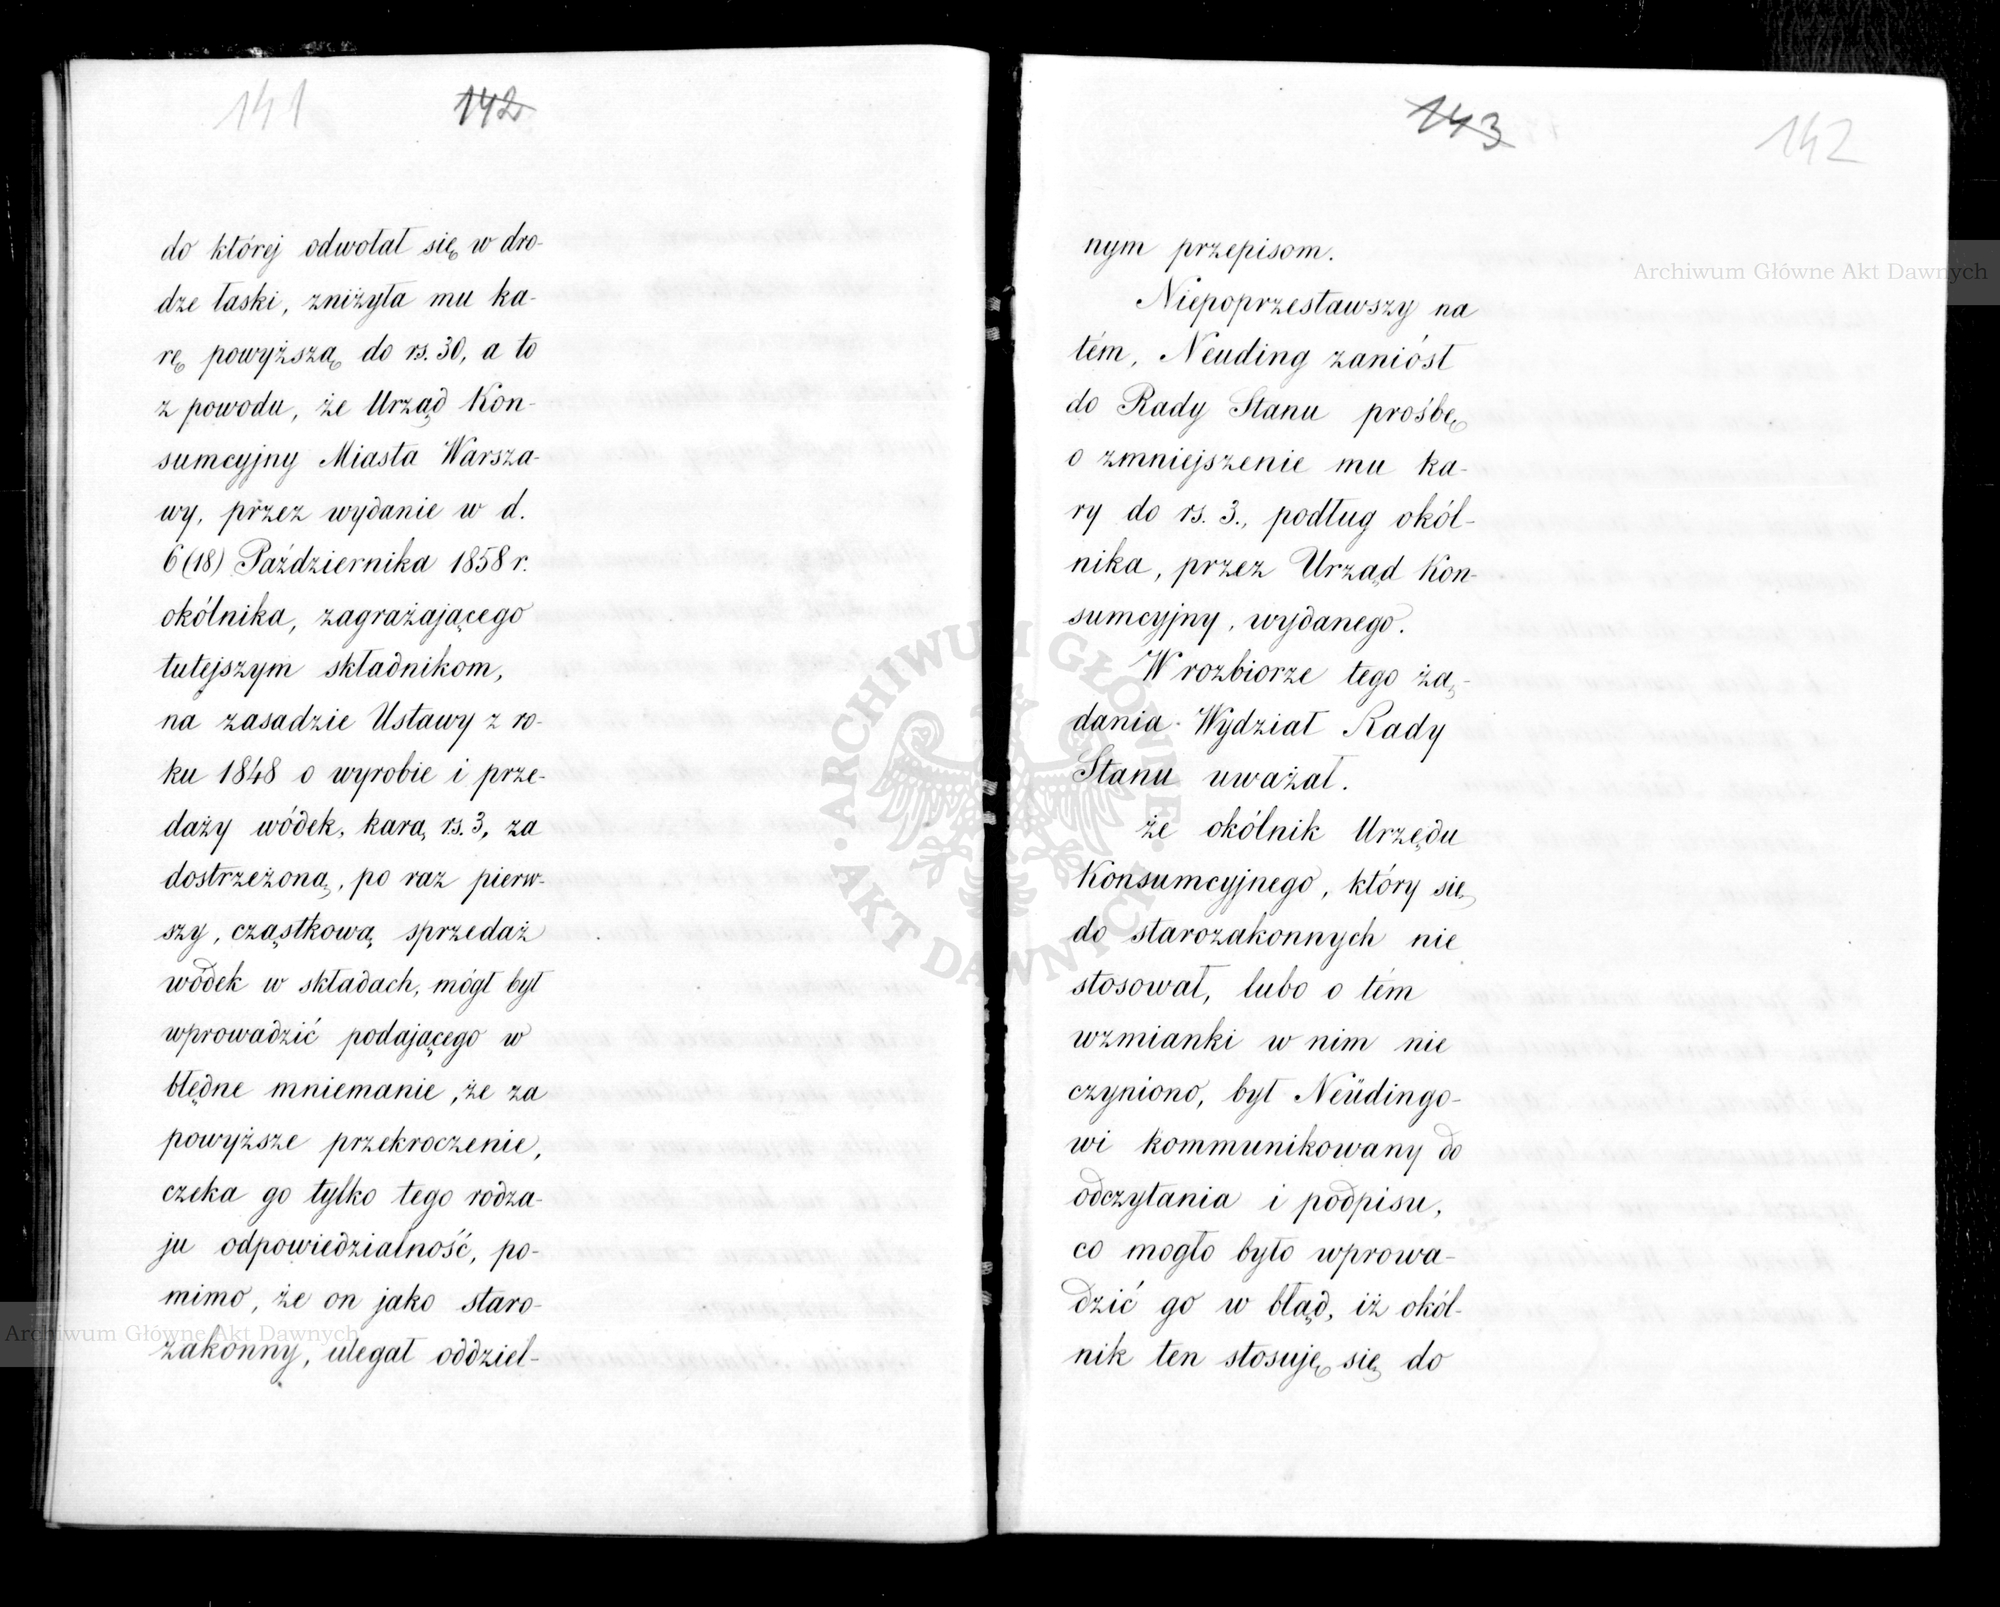 141 142
do której odwołał się w dro-
dze łaski, zniżyła mu ka-
rę powyższą do rs. 30, a to
z powodu, że Urząd Kon-
sumcyjny Miasta Warsza-
wy, przez wydanie w d.
6 (18) Października 1858 r.
okólnika, zagrażającego
tutejszym składnikom,
na zasadzie Ustawy z ro-
ku 1848 o wyrobie i prze-
daży wódek, karą rs. 3, za
dostrzeżoną, po raz pierw-
szy, cząstkową sprzedaż
wódek w składach, mógł był
wprowadzić podającego w
błędne mniemanie, że za
powyższe przekroczenie,
czeka go tylko tego rodza-
ju odpowiedzialność, po-
mimo, że on jako staro-
zakonny, ulegał oddziel-
143 142
nym przepisom.
Niepoprzestawszy na
tém, Neuding zaniósł
do Rady Stanu prośbę
o zmniejszenie mu ka-
ry do rs. 3., podług okól-
nika, przez Urząd Kon-
sumcyjny, wydanego.
W rozbiorze tego żą-
dania Wydział Rady
Stanu uważał.
że okólnik Urzędu
Konsumcyjnego, który się
do starozakonnych nie
stosował, lubo o tém
wzmianki w nim nie
czyniono, był Neüdingo-
wi kommunikowany do
odczytania i podpisu,
co mogło było wprowa-
dzić go w błąd, iż okól-
nik ten stosuję się do
Archiwum Główne Akt Dawnych
Archiwum Główne Akt Dawnych
ARCHIWUM GŁÓWNE AKT DAWNYCH